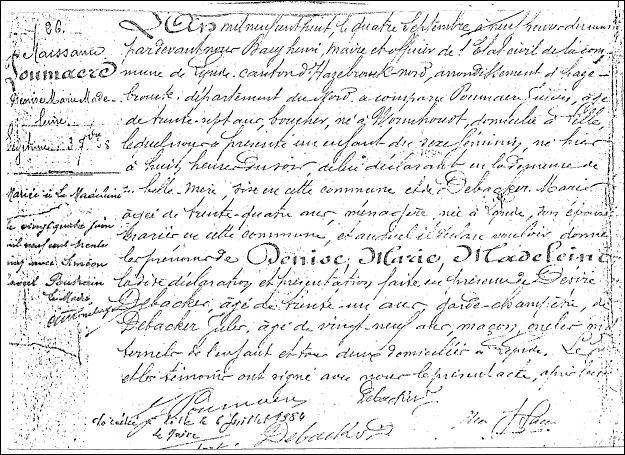 26.
Naissance
Poumaere
Denise Marie Made-
leine
Légitime 3 7bre 08
Mariée à La Madeleine
le vingt quatre juin
mil neuf cent trente
avec Siméon
Poustrain
Le Maire
L'An mil neuf cent huit, le quatre Septembre à neuf heures du matin
pardevant nous Baey Henri, Maire et officier de l'État civil de la com-
mune de Lynde, canton d'Hazebrouck-nord, arrondissement d'Haze-
brouck, département du Nord, a comparu Poumaere Jules, âgé
de trente-sept ans, boucher, né à Wormhoudt, domicilié à Lille,
lequel nous a présenté un enfant du sexe féminin, né hier
à huit heures du soir, de lui déclarant en la demeure de
sa belle-mère, sise en cette commune et de Debacker Marie
âgée de trente-quatre ans, ménagère née à Lynde, son épouse
mariés en cette commune, et auquel il déclare vouloir donner
les prénoms de Denise, Marie, Madeleine
la dite déclaration et présentation faite en présence de Désiré
Debacker, âgé de trente-un ans, garde-champêtre, de
Debacker Jules, âgé de vingt-neuf ans, maçon, oncles ma-
ternels de l'enfant et tous deux domiciliés à Lynde. Le père
et les témoins ont signé avec nous le présent acte, après lecture
Poumaere
Debacker
Décédée à Lille le 6 Juillet 1984
le Maire
Debacker